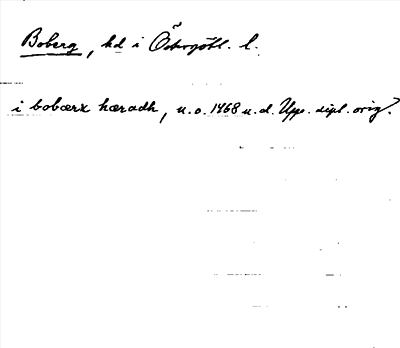 Boberg, hd i Östergötl. l.
i bobærx hæradh, u.o. 1468 u.d. Upps. dipl. orig.